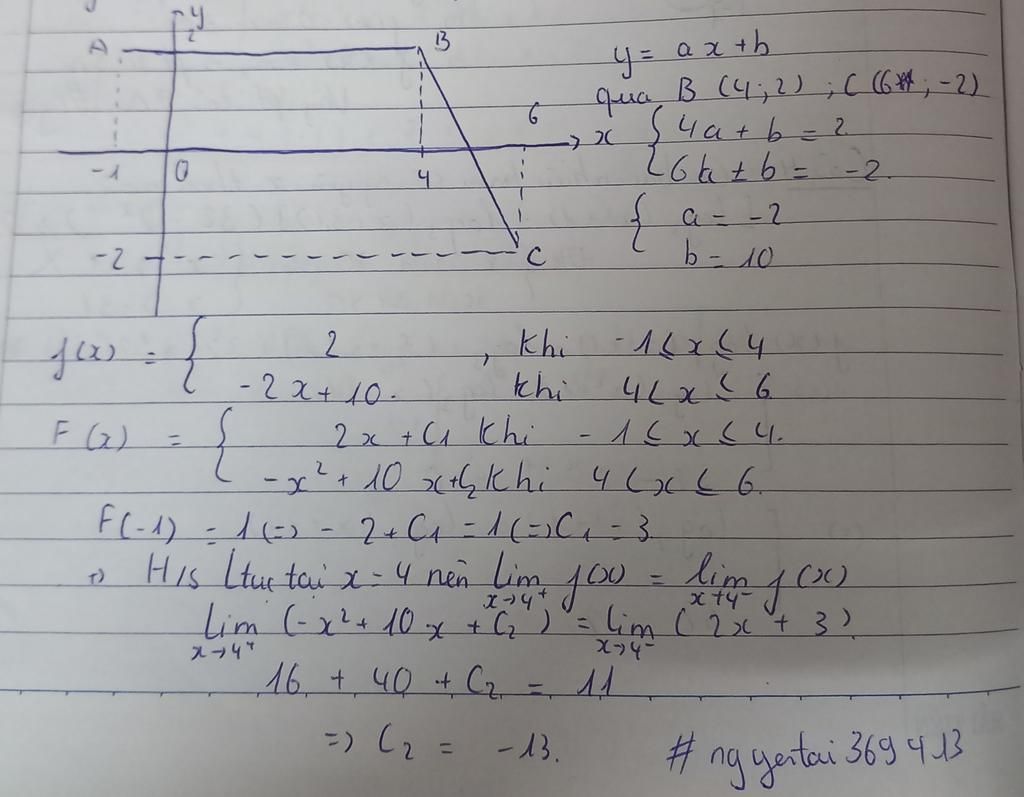 y
A 2 B
y = ax + b
qua B (4; 2) ; C (6; -2)
6
x
{ 4a + b = 2
-1 0 4
6a + b = -2.
{ a = -2
-2 C
b = 10
f(x) = { 2 , khi -1 ≤ x ≤ 4
-2x + 10. khi 4 < x ≤ 6
F(x) = { 2x + C1 khi -1 ≤ x ≤ 4.
-x² + 10x + C2 khi 4 < x ≤ 6.
F(-1) = 1 (=) -2 + C1 = 1 (=) C1 = 3
=) H/s ltuc tai x = 4 nên lim x→4⁺ f(x) = lim x→4⁻ f(x)
lim x→4⁺ (-x² + 10x + C2) = lim x→4⁻ (2x + 3).
16 + 40 + C2 = 11
=) C2 = -13.